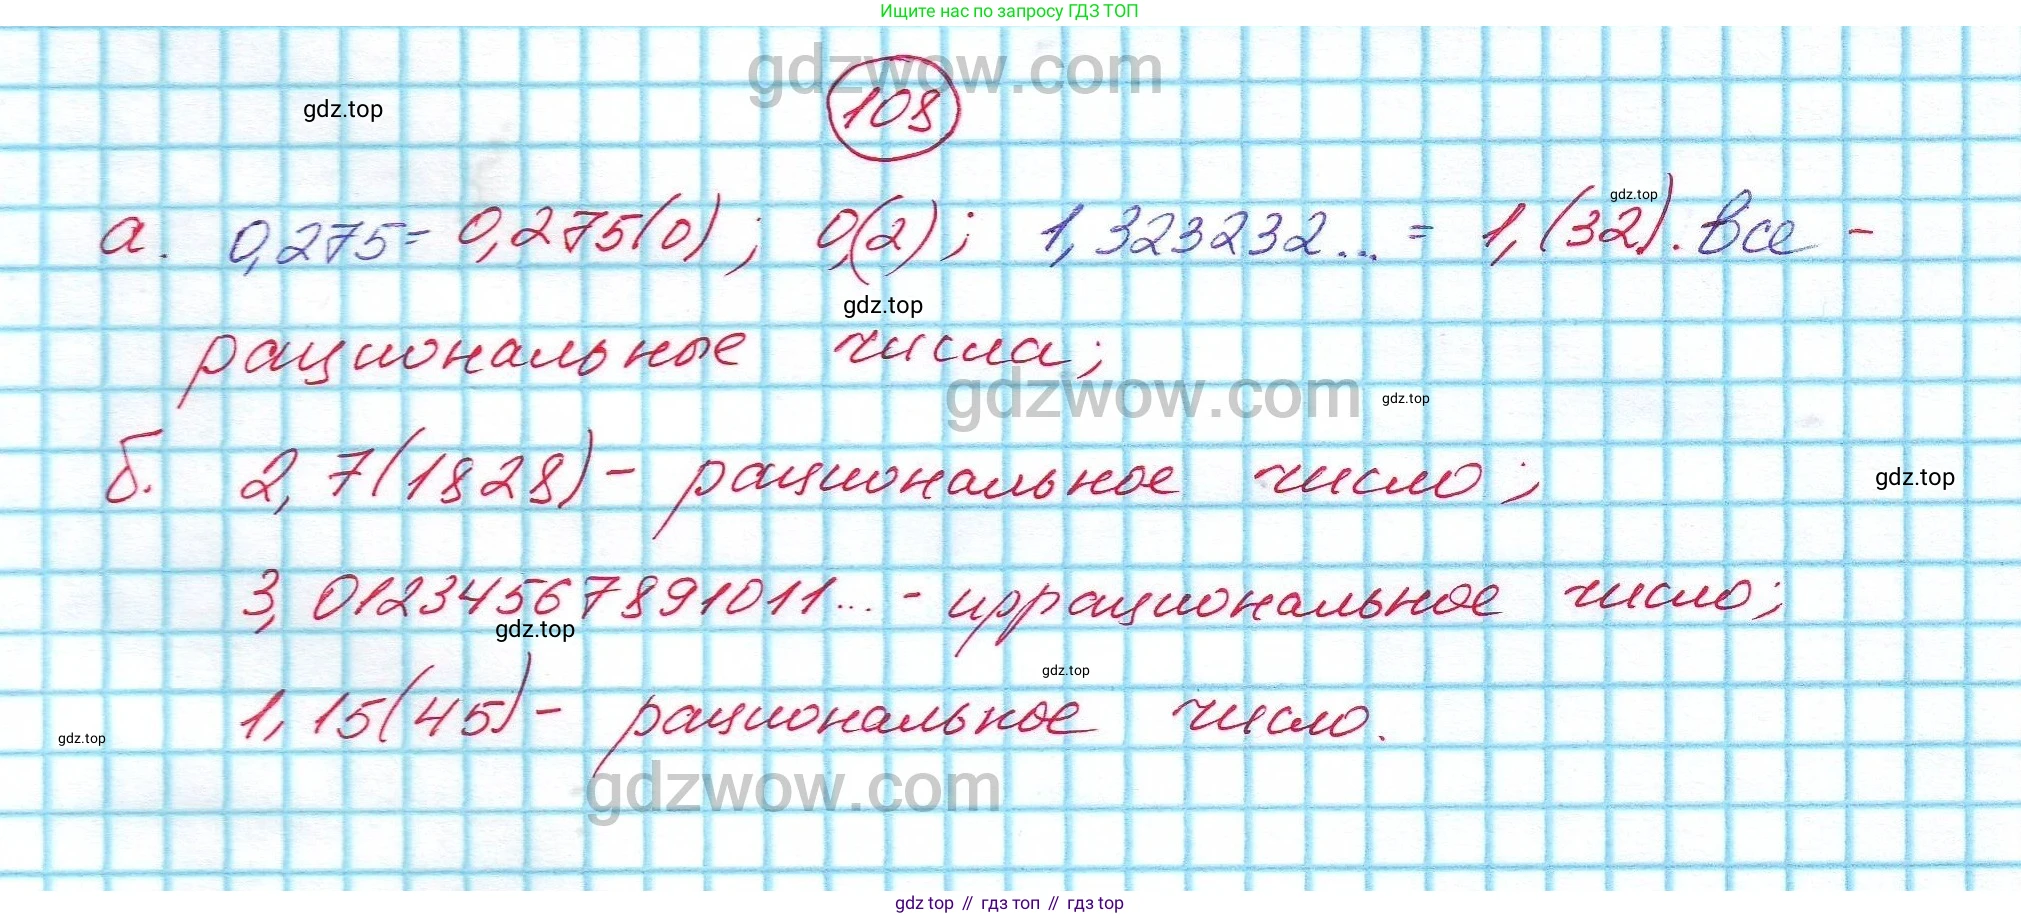 Ищите нас по запросу ГДЗ ТОП
gdzwow.com
108
gdz.top
а. 0,275 = 0,275(0); 0,(2); 1,323232... = 1,(32). Все -
gdz.top
gdz.top
рациональные числа;
gdzwow.com
gdz.top
б. 2,7(1828) - рациональное число;
gdz.top
3,01234567891011... - иррациональное число;
gdz.top
gdz.top
1,15(45) - рациональное число.
gdz.top
gdzwow.com
gdz top // гдз топ // гдз top